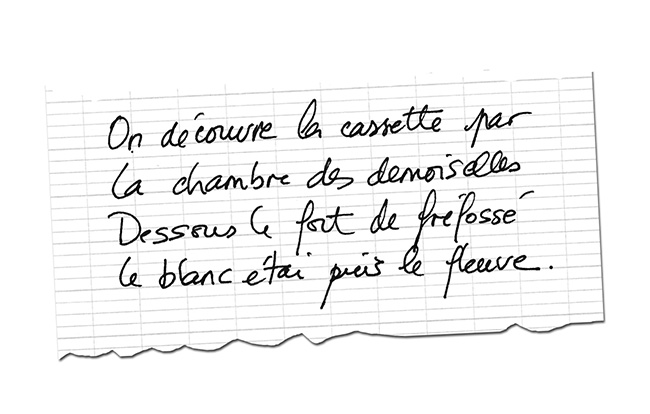 On découvre la cassette par
la chambre des demoiselles
Dessous le fort de fréfossé
le blanc étai puis le fleuve.